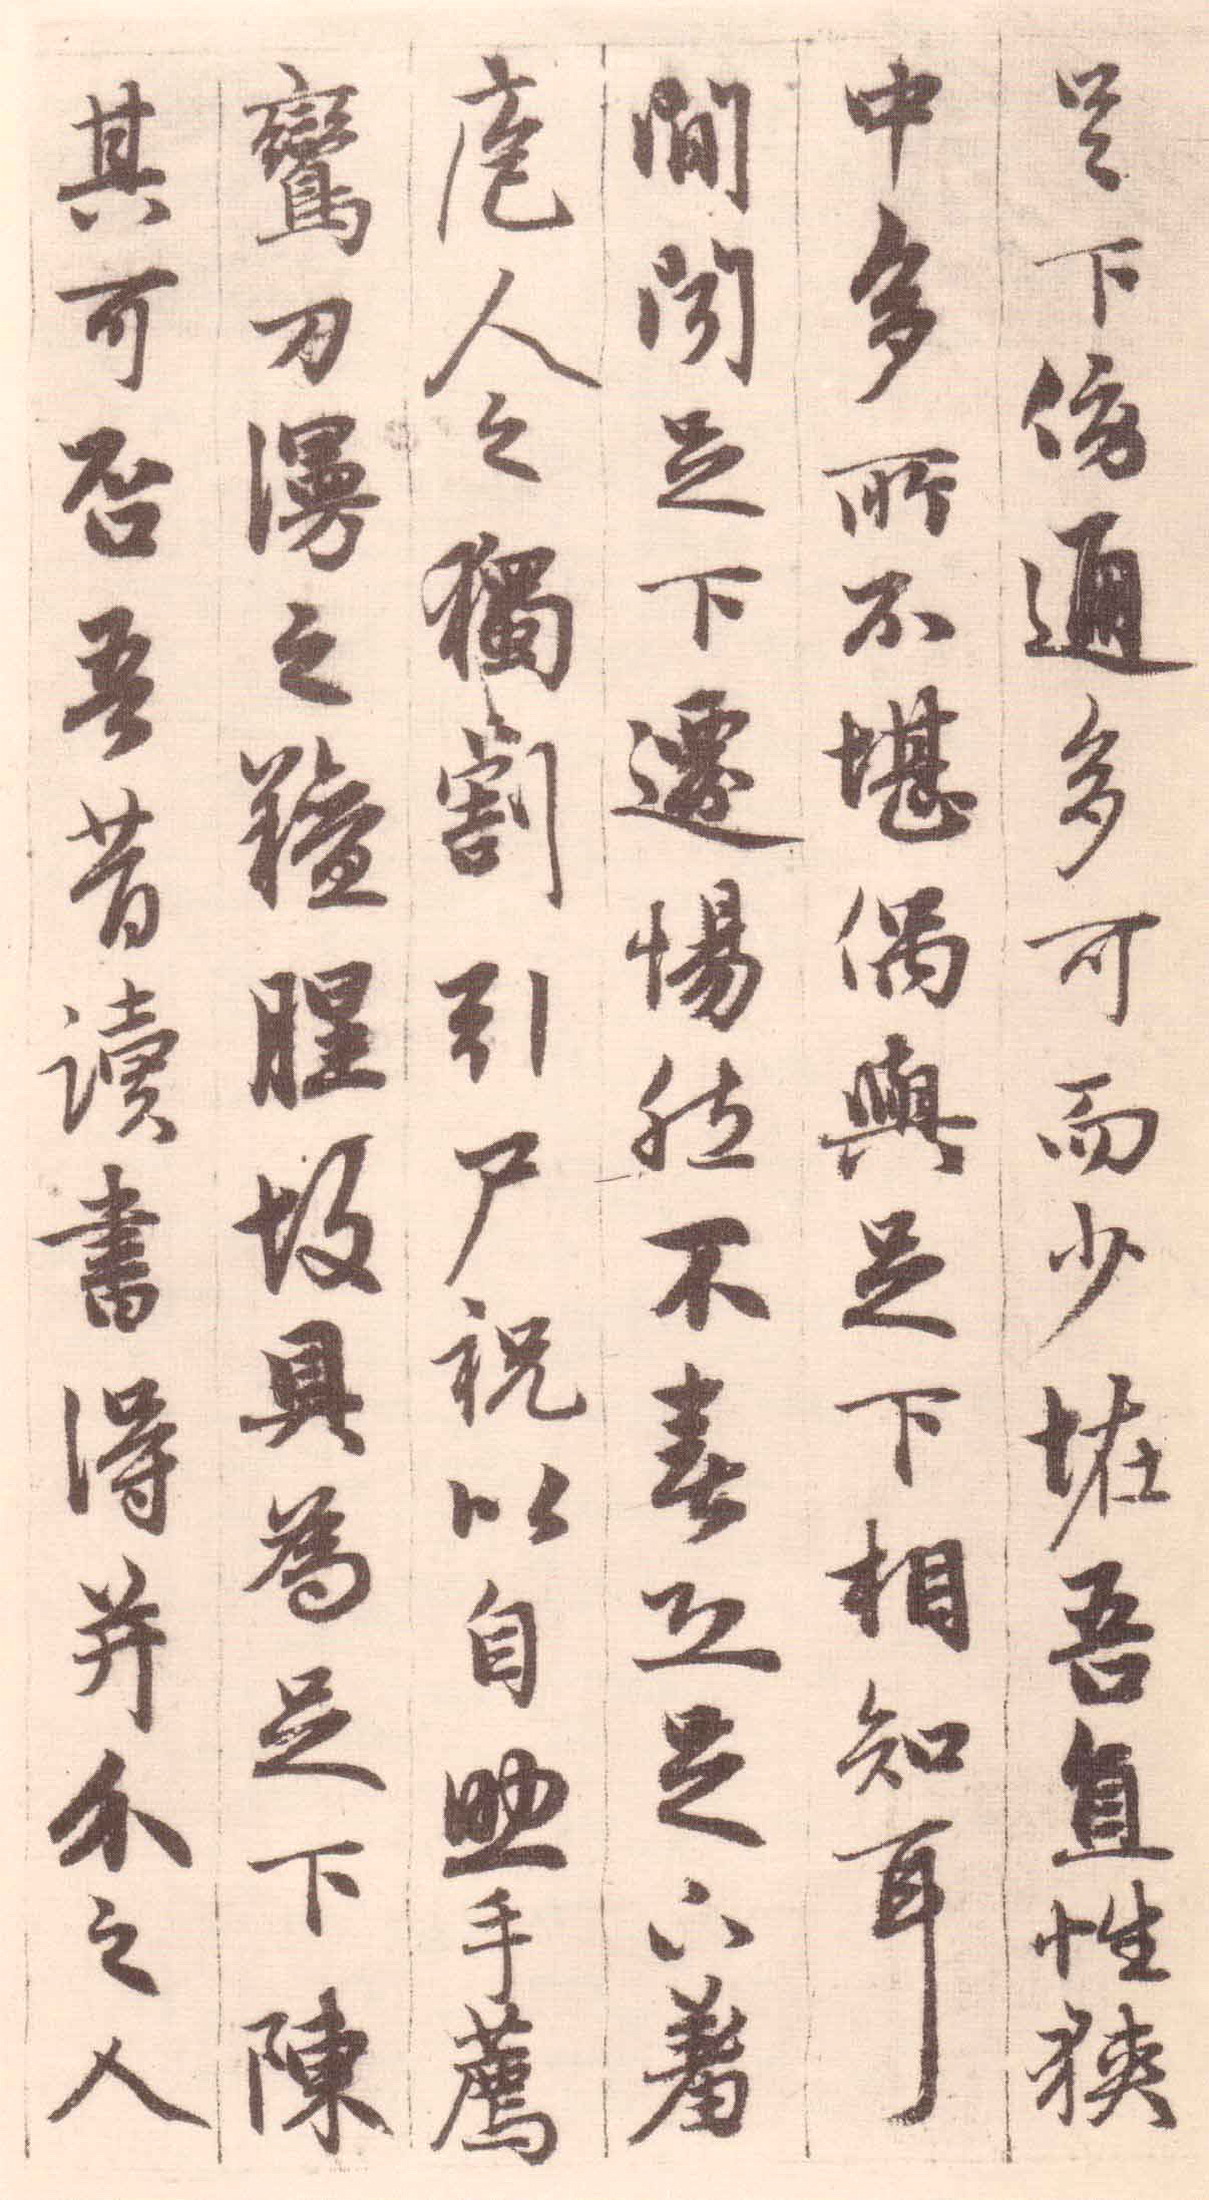 足下傍通多可而少恠吾直性狹
中多所不堪偶與足下相知耳
間聞足下遷惕然不喜恐足下羞
庖人之獨割引尸祝以自助手薦
鸞刀漫之羶腥故具為足下陳
其可否吾昔讀書得并介之人